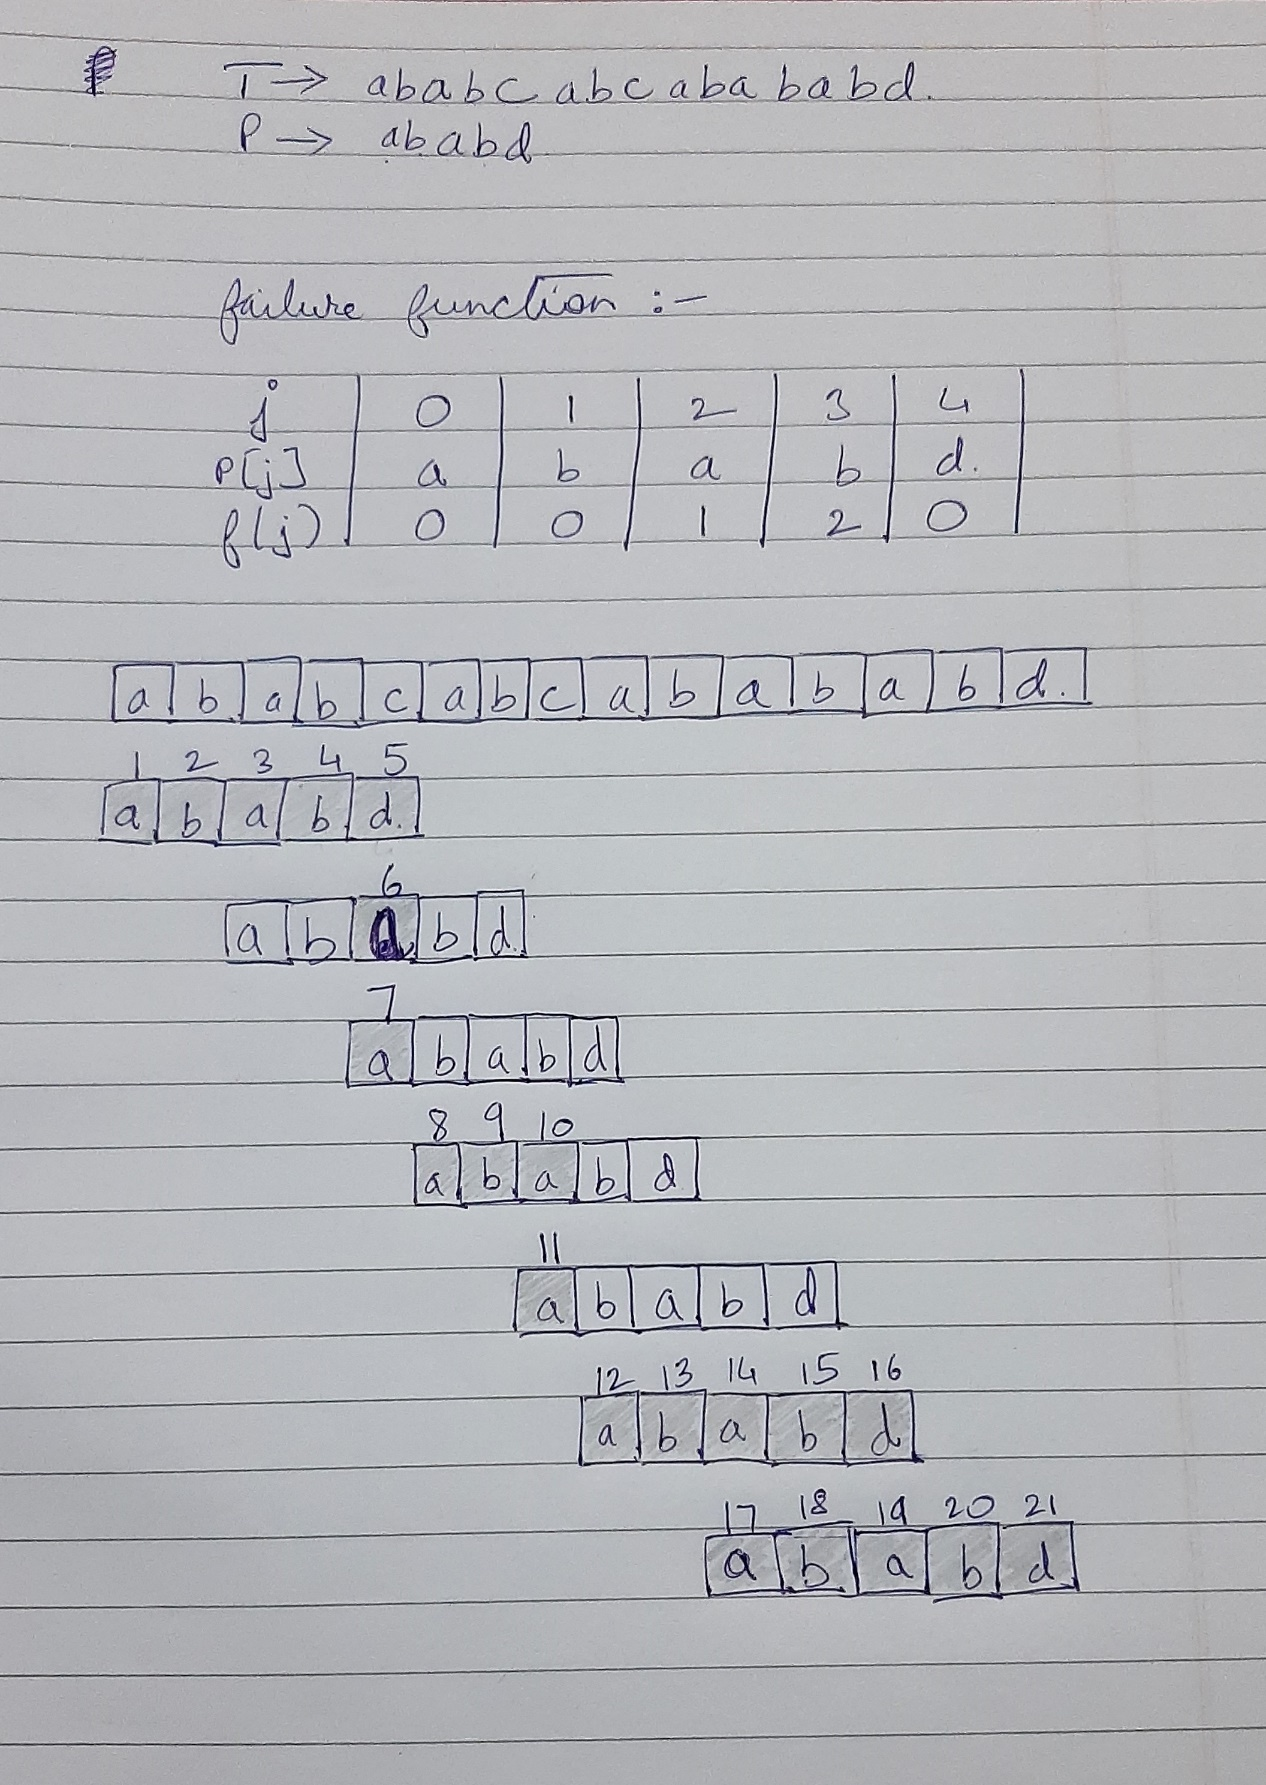 T → ababc abc aba babd.
P → ababd
failure function :-
j 0 1 2 3 4
P[j] a b a b d.
f(j) 0 0 1 2 0
a b a b c a b c a b a b a b d.
1 2 3 4 5
a b a b d.
6
a b a b d
7
a b a b d
8 9 10
a b a b d
11
a b a b d
12 13 14 15 16
a b a b d
17 18 19 20 21
a b a b d